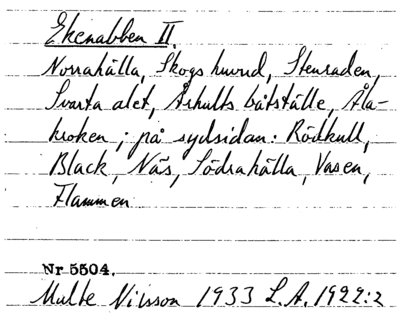 Ekenabben II.
Norrahälla, Skogshuvud, Stenraden,
Svarta alet, Århults båtställe, Åla-
kroken; på sydsidan: Rödkull,
Black, Näs, Södrahälla, Vasen,
Flammen
Nr 5504.
Malte Nilsson 1933 L.A. 1922:2